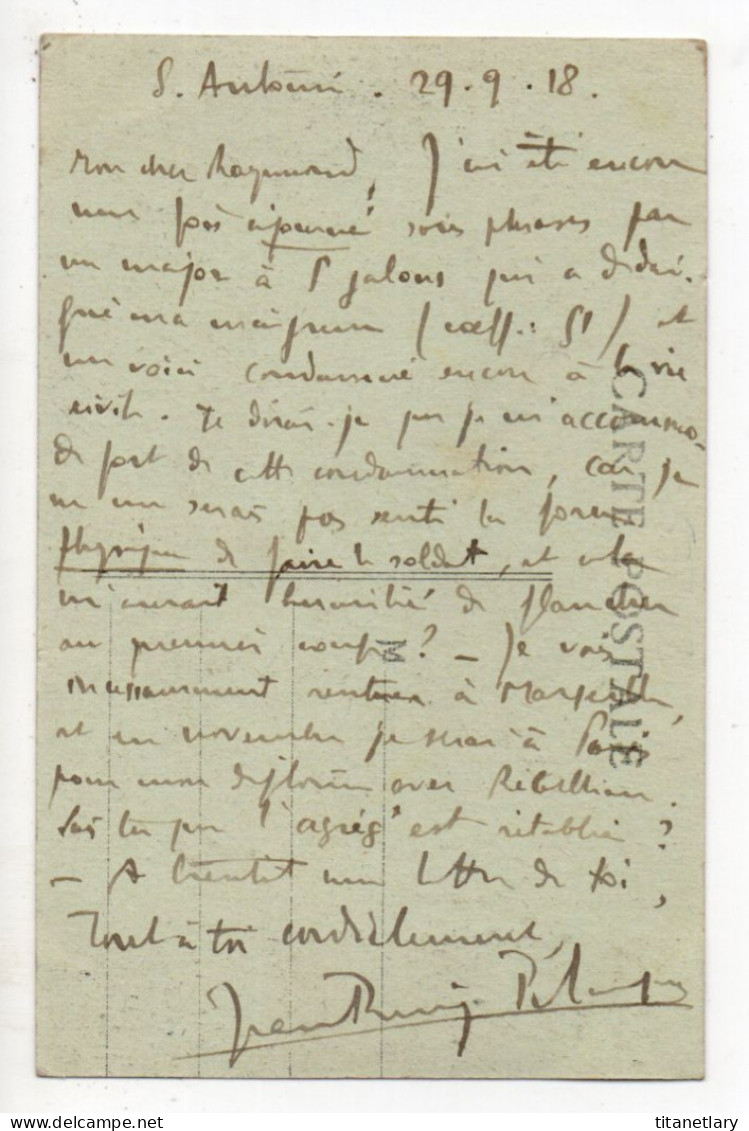 S. Antonin . 29 . 9 . 18 .
Mon cher Raymond, J'ai été encore
une fois ajourné sans phrases par
un major à 5 galons qui a dédai-
gné ma maigreur (coeff.: 51) et
me voici condamné encore à la vie
civile. Te dirai-je que je m'accommo-
de fort de cette condamnation, car je
ne me serais pas senti la force
physique de faire le soldat, et cela
m'aurait humilié de flancher
au premier coup? — Je vais
incessamment rentrer à Marseille,
et en novembre je serai à Paris
pour mon diplôme avec Rébelliau.
Sais tu que l'agrég° est rétablie?
— A bientôt une lettre de toi,
Tout à toi cordialement,
Jean
CARTE POSTALE
M
titanetlary